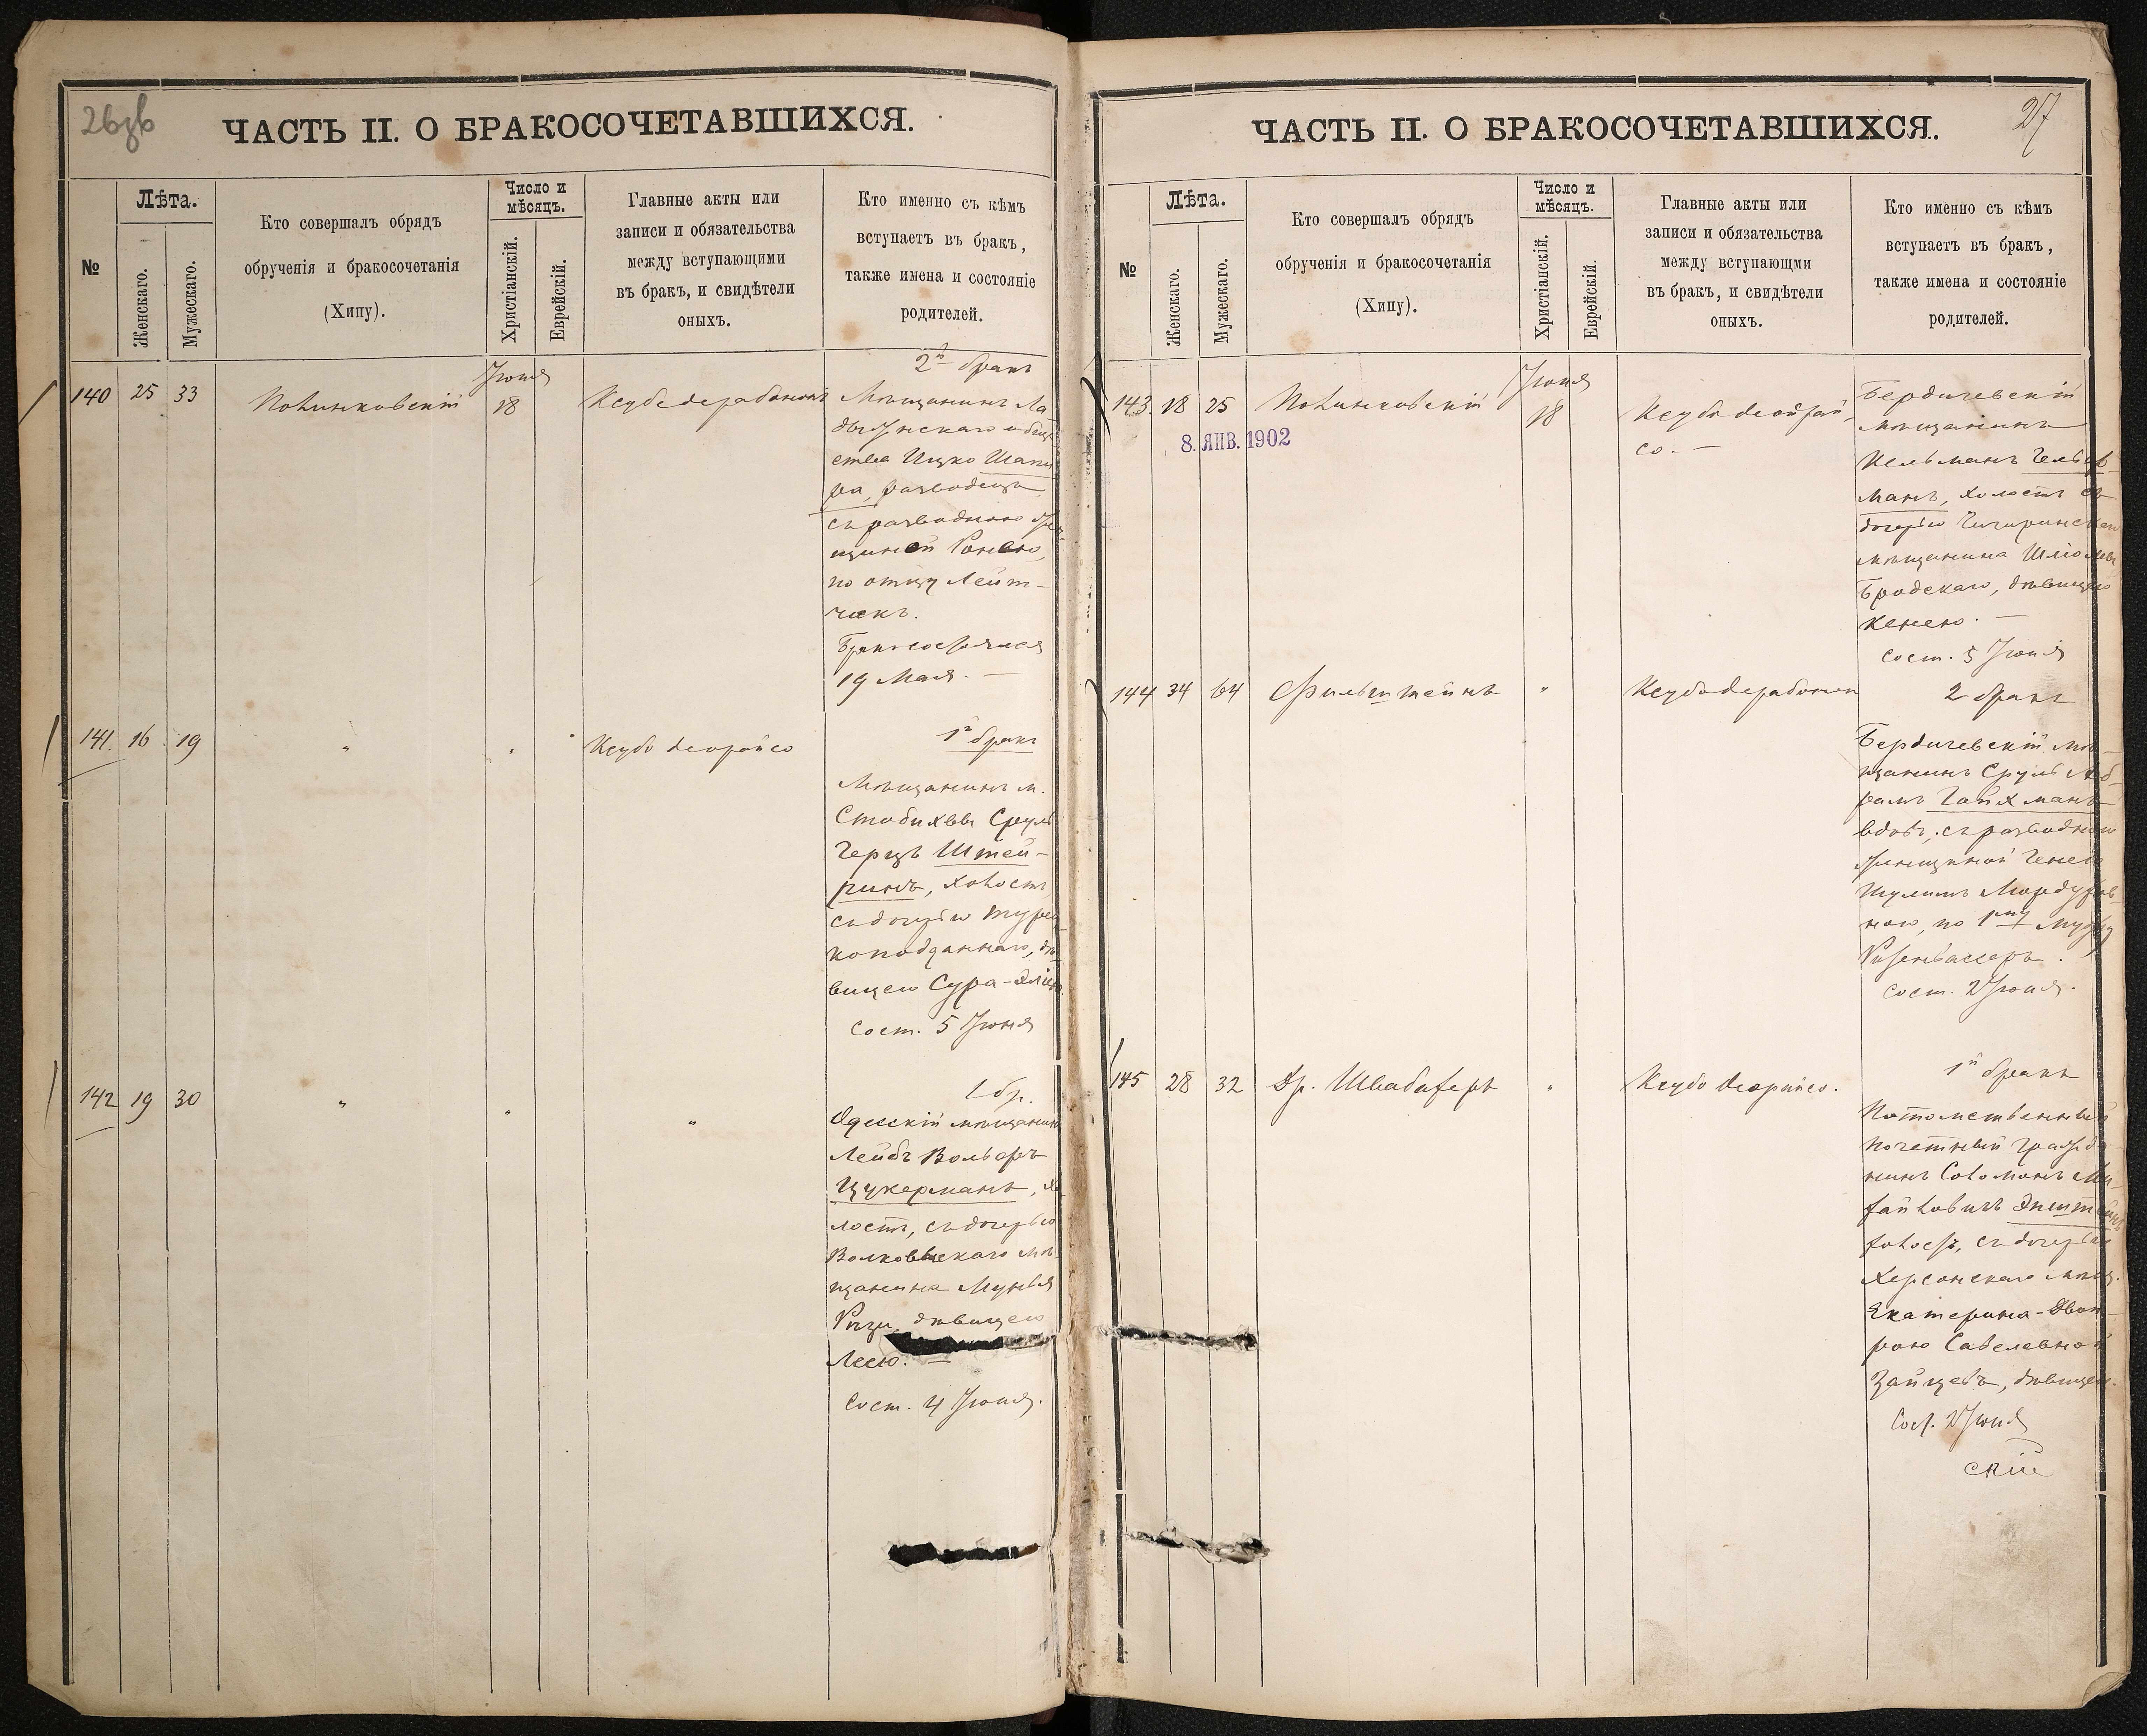 26зв
ЧАСТЬ II. О БРАКОСОЧЕТАВШИХСЯ.
№
Лѣта.
Женскаго.
Мужескаго.
Кто совершалъ обрядъ
обрученія и бракосочетанія
(Хипу).
Число и
мѣсяцъ.
Христіанскій.
Еврейскій.
Главные акты или
записи и обязательства
между вступающими
въ бракъ, и свидѣтели
оныхъ.
Кто именно съ кѣмъ
вступаетъ въ бракъ,
также имена и состояніе
родителей.
140 25 33
Полинковскій
Іюня
18
Ксубе дерабонон
2й бракъ
Мѣщанинъ Ла-
дыжскаго общ
ства Ицко Шапи
ра, разводецъ
съ разводною жен
щиной
по отцу Лейт-
чикъ.
Бракъ состоялся
19 Мая. —
141. 16 19
"
"
Ксубо деорайсо
1й бракъ
Мѣщанинъ м.
Стобихвы Сруль
Герцъ Штей-
ринъ, холостъ
съ дочерью турец
коподданнаго, дѣ
вицею Сура-
Сост. 5 Іюня
142 19 30
"
"
"
1 бр.
Одесскій мѣщанинъ
Лейбъ Вольфъ
Цукерманъ, хо
лостъ, съ дочерью
Волковыскаго мѣ
щанина
дѣвицею
Леею. —
Сост. 4 Іюня.
27
ЧАСТЬ II. О БРАКОСОЧЕТАВШИХСЯ.
№
Лѣта.
Женскаго.
Мужескаго.
Кто совершалъ обрядъ
обрученія и бракосочетанія
(Хипу).
Число и
мѣсяцъ.
Христіанскій.
Еврейскій.
Главные акты или
записи и обязательства
между вступающми
въ бракъ, и свидѣтели
оныхъ.
Кто именно съ кѣмъ
вступаетъ въ бракъ,
также имена и состояніе
родителей.
143 18 25
8. ЯНВ. 1902
Полинковскій
Іюня
18
Ксубо деойрай-
со. —
Бердичевскій
мѣщанинъ
Кельманъ Гельфер
манъ, холостъ съ
дочерью Чигиринскаго
мѣщанина Шлемы
Бродскаго, дѣвицею
Кенею. —
Сост. 5 Іюня
144 34 64
Фильштейнъ
"
Ксубо дерабонон
2 бракъ
Бердичевскій мѣ-
щанинъ Сруль Аб
рамъ Гайхманъ
вдовъ, съ разводною
женщиной Генею
Шулимъ Мордухов
ною, по 1му мужу
Розенвассеръ.
Сост. 2 Іюня.
145 28 32
Др. Швабахеръ
"
Ксубо деорайсо.
1й бракъ
Потомственный
почетный гражда
нинъ Соломонъ Ми
хайловичъ Эпштейнъ
холостъ, съ дочерью
Херсонскаго мѣщ.
Екатерина-Двой
рою Савелевной
Зайцевъ, дѣвицею.
Сост. 2 Іюня
скій